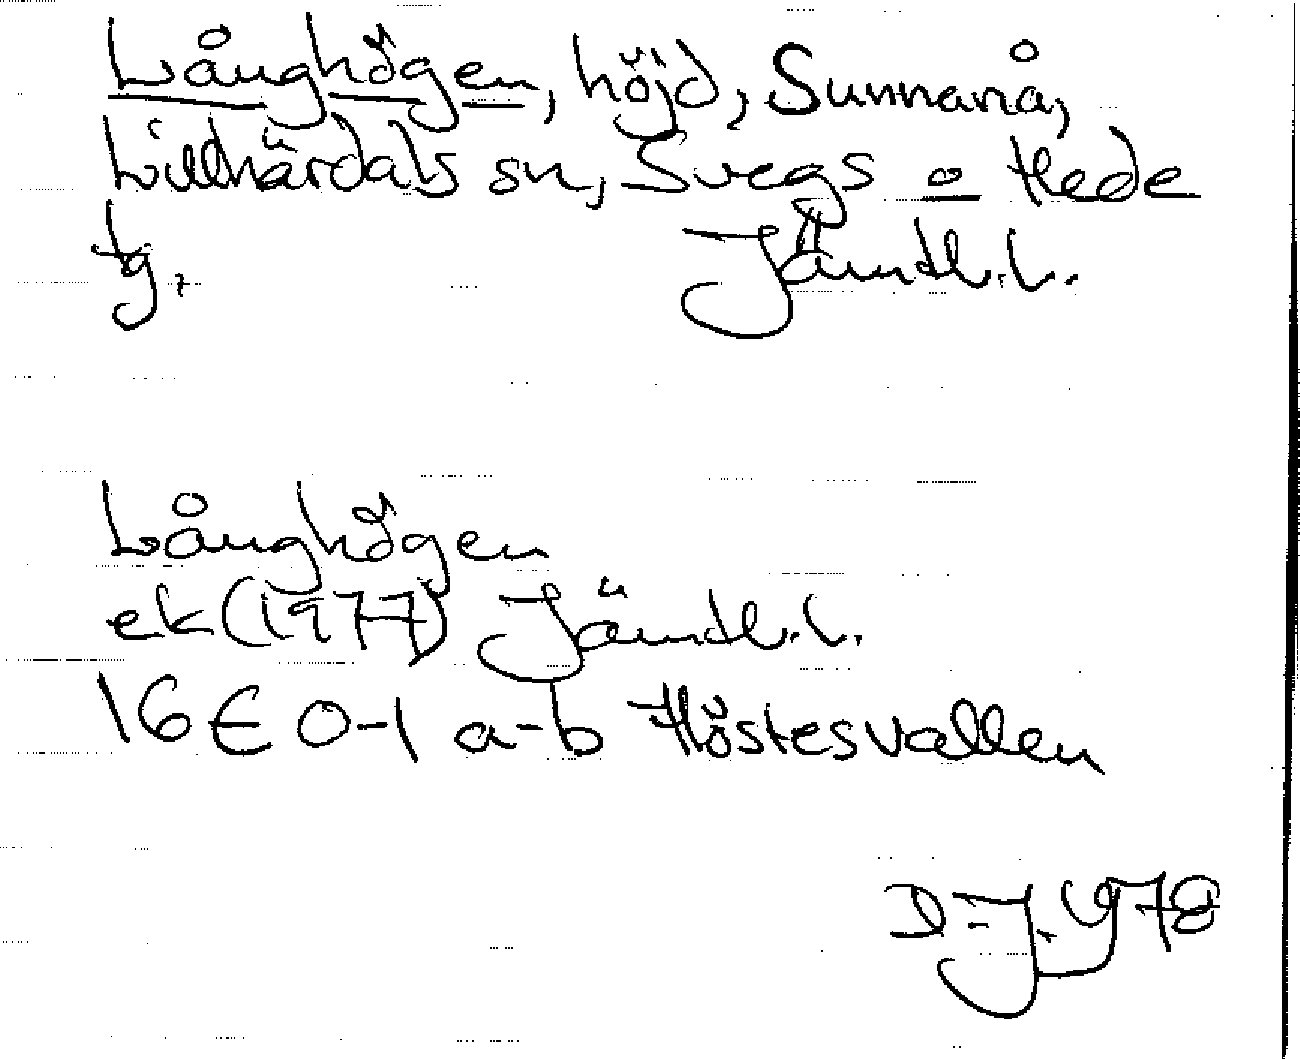 Långhögen, höjd, Sunnanå,
Lillhärdals sn, Svegs o Hede
tg,
Jämtl.l.
Långhögen
ek (1977) Jämtl.l.
16 E 0-1 a-b Höstesvallen
D-J. 1978